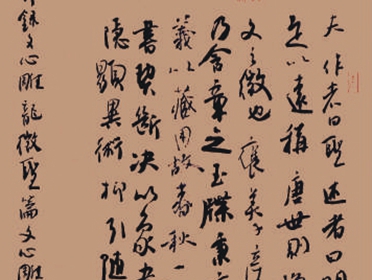 夫作者曰聖述者曰明
是以遠稱唐世則
文之徵也褒美子產
乃含章之玉牒秉
義以藏用故春秋一
書契斷决以象
隱顯異術抑引隨
錄文心雕龍徵聖篇文心雕